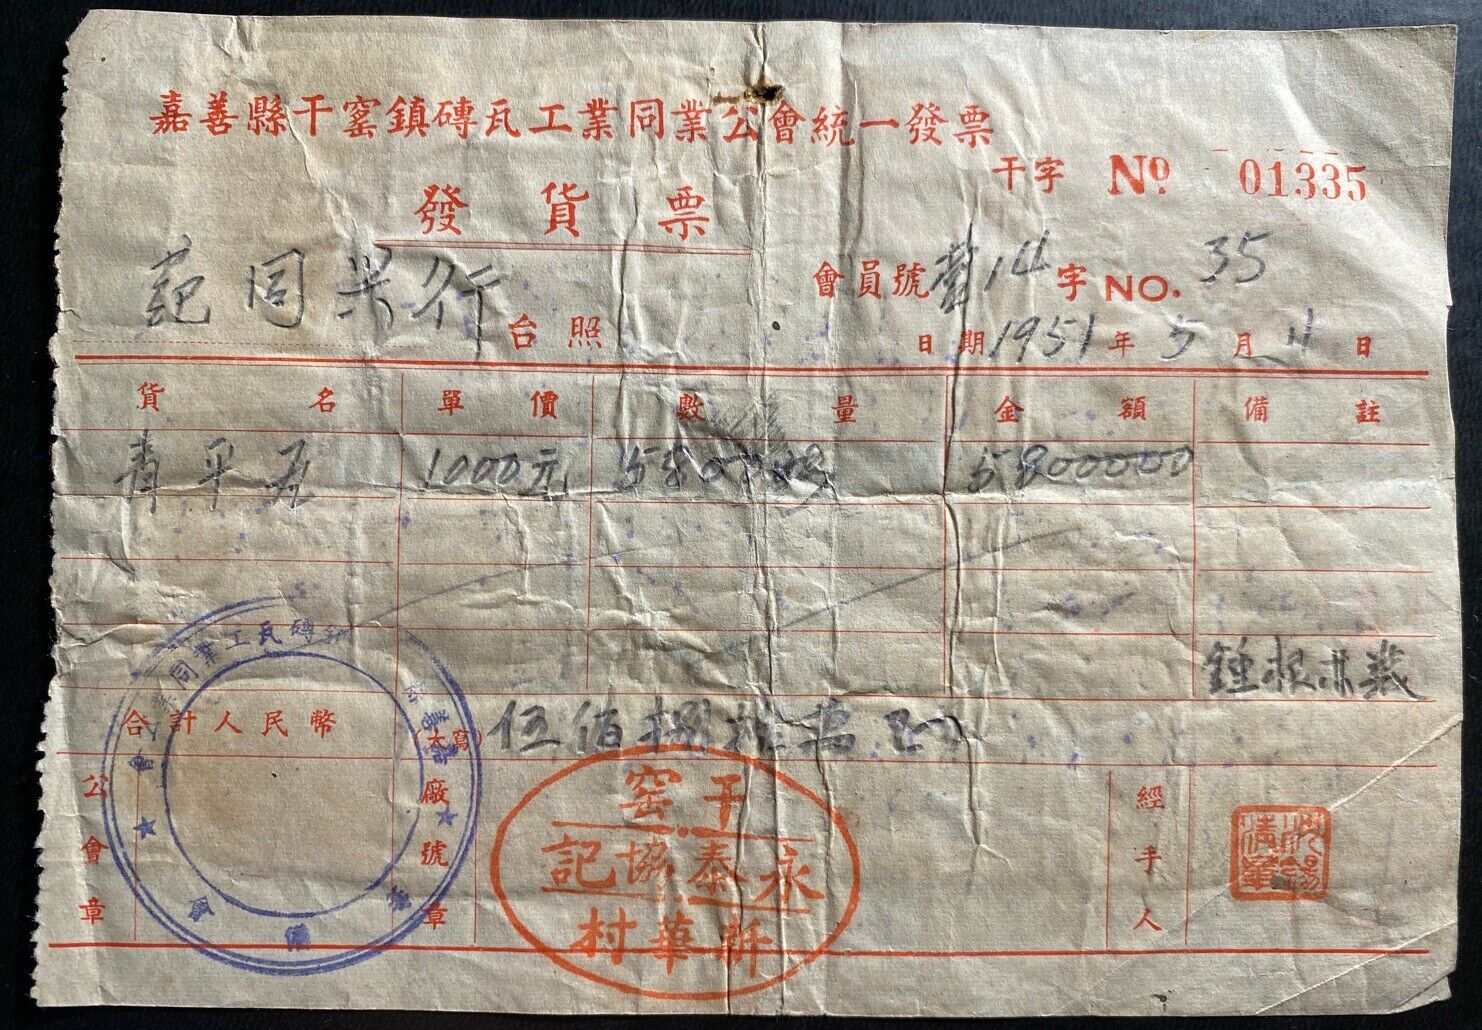 嘉善縣干窰鎮磚瓦工業同業公會統一發票
干字 Nº 01335
發貨票
范同兴行 台照
會員號 14 字 NO. 35
日期 1951 年 5 月 11 日
貨名 單價 數量 金額 備註
青平瓦 1000元 5800 5800000
鍾根
合計人民幣 (大寫) 伍佰捌拾萬正
公會章 廠號章 經手人
磚瓦工業同業公會
嘉善
籌備會
干窰
永泰協記
華村